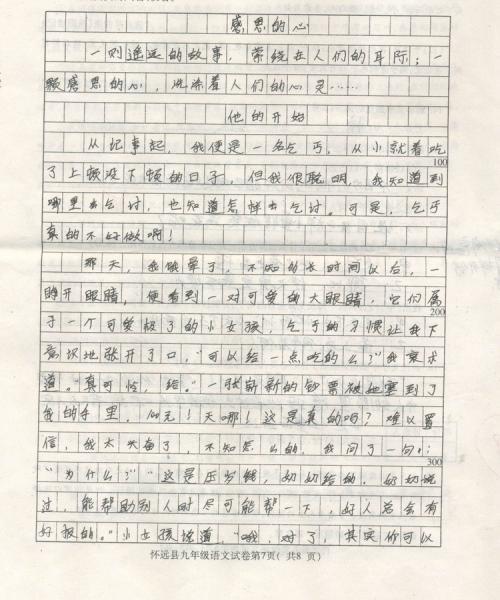 感恩的心
一则遥远的故事，萦绕在人们的耳际；一
颗感恩的心，洗涤着人们的心灵……
他的开始
从记事起，我便是一名乞丐，从小就着吃
100
了上顿没下顿的日子，但我很聪明，我知道到
哪里去乞讨，也知道怎样去乞讨。可是，乞丐
真的不好做啊！
那天，我饿晕了，不知多长时间以后，一
睁开眼睛，便看到一对可爱的大眼睛，它们属
200
于一个可爱极了的小女孩，乞丐的习惯让我下
意识地张开了口，“可以给一点吃的么？”我哀求
道。“真可怜，给。”一张崭新的钞票被她塞到了
我的手里，100元！天哪！这是真的吗？难以置
信，我太兴奋了，不知怎么的，我问了一句：
300
“为什么？”“这是压岁钱，奶奶给的，奶奶说
过，能帮助别人时尽可能帮一下，好人总会有
好报的。”小女孩说道，“哦，对了，其实你可以
怀远县九年级语文试卷第7页( 共8 页)